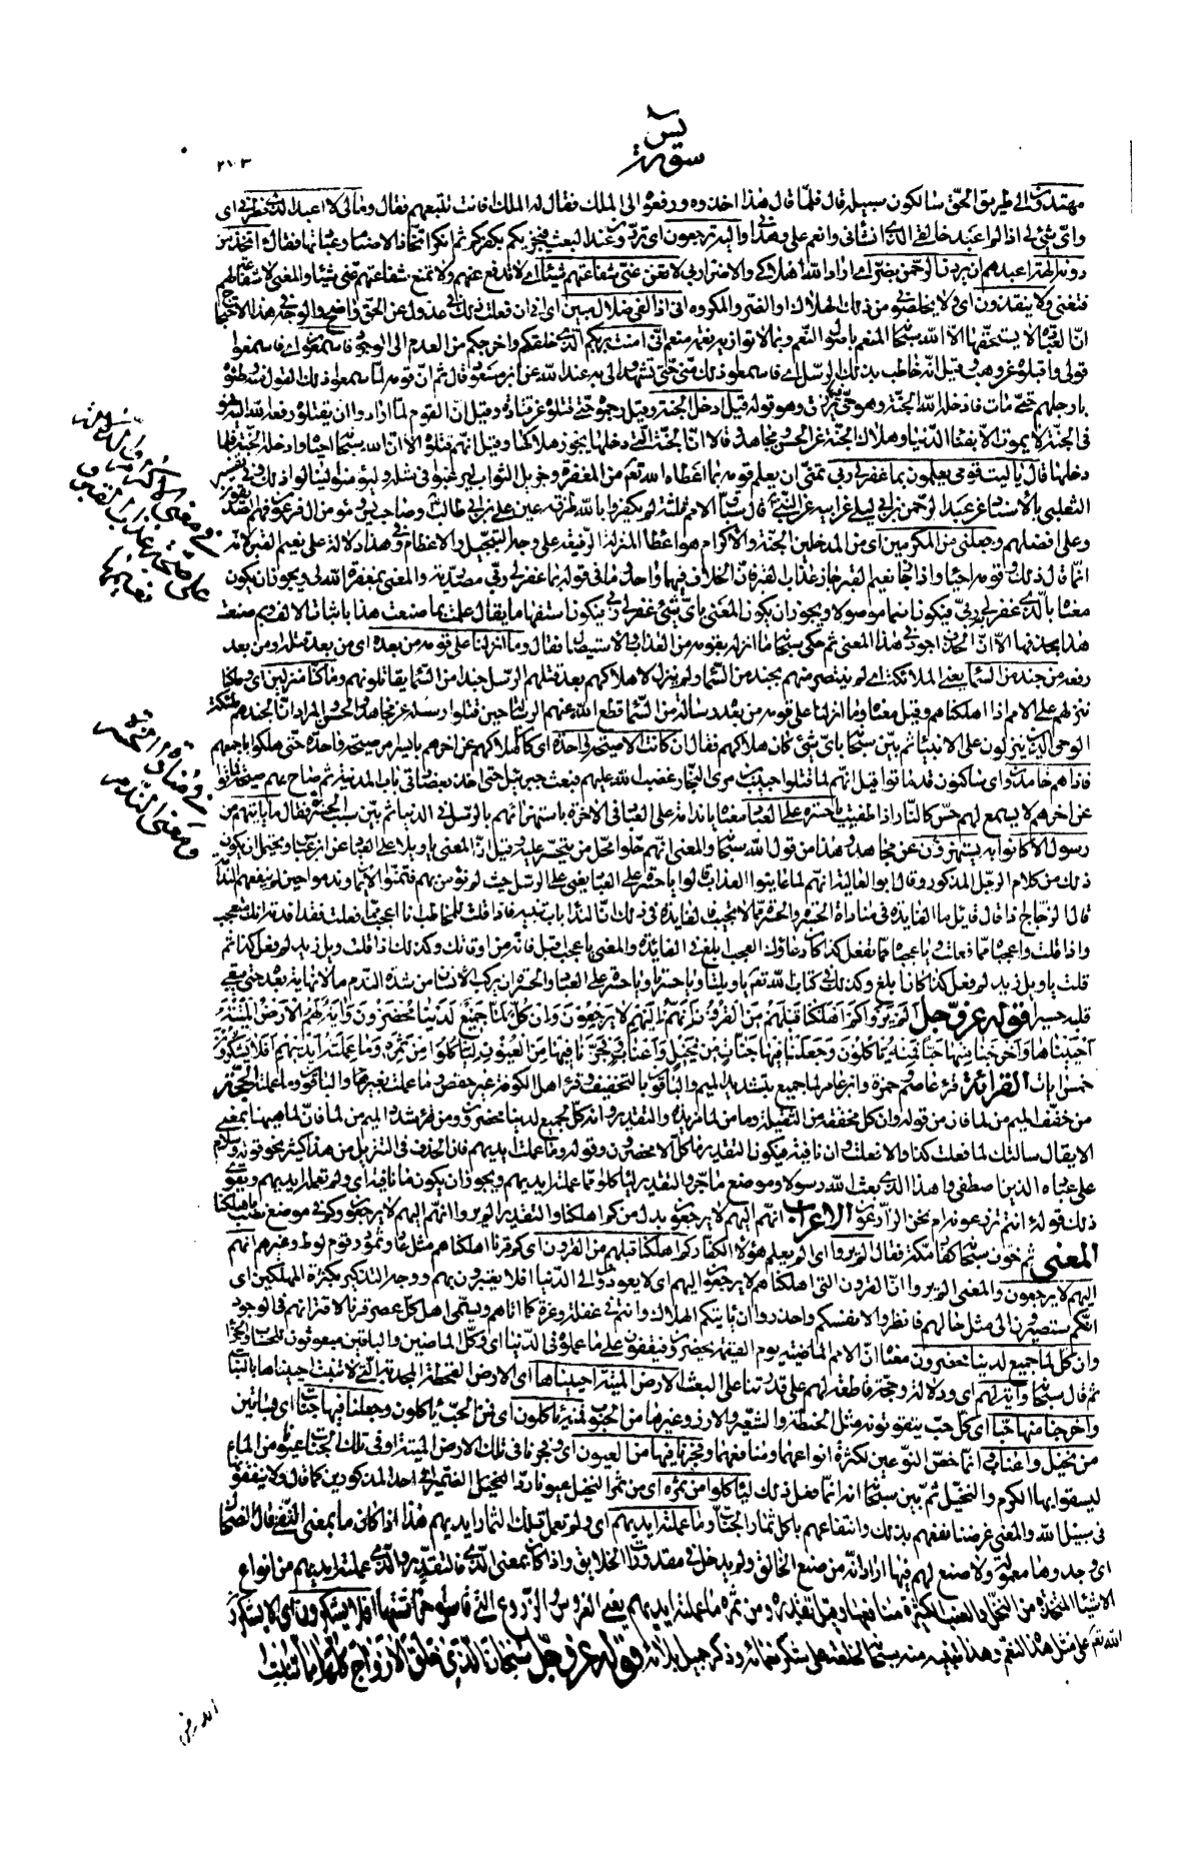 يس
سورة
٢٠٣
مهتدون الى طريق الحق سالكون سبيله قال فلما قال هذا اخذوه ورفعوه الى الملك فقال له الملك فانت تتبعهم فقال ومالي لا اعبد الذي فطرني اى
واى شئ لى اذا لم اعبد خالقى الذى انشأنى وانعم على وهدانى واليه ترجعون اى تردون عند البعث فيجزيكم بكفركم ثم انكر اتخاذ الاصنام وعبادتها فقال ءاتخذ من
دونه الهة اعبدهم ان يردن الرحمن بضر اى اراد الله اهلاكى والاضرار بى لا تغن عنى شفاعتهم شيئا اى لا تدفع عنهم ولا تمنع شفاعتهم عنى شيئا والمعنى لا شفاعة لهم
فتغنى ولا ينقذون اى ولا يخلصونى من ذلك الهلاك او الضر والمكروه انى اذا لفى ضلال مبين اى انى ان فعلت ذلك فى عدول عن الحق واضح والوجه فى هذا الاحتجاج
ان العبادة لا يستحقها الا الله سبحانه المنعم باصول النعم وبما لا توازيه نعمة منعم انى امنت بربكم الذى خلقكم واخرجكم من العدم الى الوجود فاسمعون اى فاسمعوا
قولى واقبلوه عن وهب وقيل انه خاطب بذلك الرسل اى فاسمعوا ذلك منى حتى تشهدوا لى به عند الله عن ابن مسعود قال ثم ان قومه لما سمعوا ذلك القول منه وطئوه
بارجلهم حتى مات فادخله الله الجنة وهو حى فيها يرزق وهو قوله قيل ادخل الجنة وقيل رجموه حتى قتلوه عن قتادة وقيل ان القوم لما ارادوا ان يقتلوه رفعه الله اليه فهو
فى الجنة لا يموت الا بفناء الدنيا وهلاك الجنة عن الحسن ومجاهد وقالا ان الجنة التى دخلها يجوز هلاكها وقيل انهم قتلوه الا ان الله سبحانه احياه وادخله الجنة فلما
دخلها قال يا ليت قومى يعلمون بما غفر لى ربى تمنى ان يعلم قومه بما اعطاه الله تعم من المغفرة وجزيل الثواب ليرغبوا فى مثله وليؤمنوا لينالوا ذلك وفى تفسير
الثعلبى بالاسناد عن عبد الرحمن بن ابى ليلى عن ابيه عن النبى قال سباق الامم ثلثة لم يكفروا بالله طرفة عين على بن ابى طالب وصاحب يس ومؤمن ال فرعون فهم الصديقون
وعلى افضلهم وجعلنى من المكرمين اى من المدخلين الجنة والاكرام هو اعطاء المنزلة الرفيعة على وجه التبجيل والاعظام وفى هذا دلالة على نعيم القبر لانه
انما قال ذلك وقومه احياء واذا جاز نعيم القبر جاز عذاب القبر فان الخلاف فيهما واحد وما فى قوله بما غفر لى ربى مصدرية والمعنى بمغفرة الله لى ويجوز ان يكون
معناه بالذى غفر لى ربى فيكون اسما موصولا ويجوز ان يكون المعنى باى شئ غفر لى ربى فيكون استفهاما يقال علمت بما صنعت هذا باثبات الالف وبم صنعت
هذا بحذفها الا ان الحذف اجود فى هذا المعنى ثم حكى سبحانه ما انزله بقومه من العذاب والاستيصال فقال وما انزلنا على قومه من بعده اى من بعد قتله ومن بعد
رفعه من جند من السماء يعنى الملائكة اى لم ينتصر منهم بجند من السماء ولم ينزل لاهلاكهم بعد قتلهم الرسل جندا من السماء يقاتلونهم وما كنا منزلين اى وما كنا
ننزلهم على الامم اذا اهلكناهم وقيل معناه وما انزلنا على قومه من بعده رسالة من السماء قطع الله عنهم الرسالة حين قتلوا رسله عن مجاهد والحسن والمراد ان الجند هم ملئكة
الوحى الذين ينزلون على الانبياء ثم بين سبحانه باى شئ كان هلاكهم فقال ان كانت الا صيحة واحدة اى كان هلاكهم عن اخرهم بايسر امر صيحة واحدة حتى هلكوا باجمعهم
فاذا هم خامدون اى ساكنون قد ماتوا قيل انهم لما قتلوا حبيب بن مرى النجار غضب الله عليهم فبعث جبريل حتى اخذ بعضادتى باب المدينة ثم صاح بهم صيحة فماتوا
عن اخرهم لا يسمع لهم حس كالنار اذا طفيت يا حسرة على العباد معناه يا ندامة على العباد فى الاخرة باستهزائهم بالرسل فى الدنيا ثم بين سبب الحسرة فقال ما ياتيهم من
رسول الا كانوا به يستهزؤن عن مجاهد وهذا من قول الله سبحانه والمعنى انهم حلوا محل من يتحسر عليه وقيل ان المعنى يا ويلا على العباد عن ابن عباس ويحتمل ان يكون
ذلك من كلام الرجل المذكور وقال ابو العالية انهم لما عاينوا العذاب قالوا يا حسرة على العباد يعنى على الرسل حيث لم نؤمن بهم فتمنوا الايمان وندموا حين لم ينفعهم الندامة
قال الزجاج اذا قال قائل ما الفايدة فى مناداة الحسرة والحسرة مما لا يجيب فالفايدة فى ذلك ان النداء باب تنبيه فاذا قلت للمخاطب انا اعجب مما فعلت فقد افدته انك متعجب
واذا قلت واعجباه مما فعلت ويا عجباه مما تفعل كذا كان دعاؤك العجب ابلغ فى الفائدة والمعنى يا عجب اقبل فانه من اوقاتك وكذلك اذا قلت ويل زيد لم فعل كذا ثم
قلت يا ويل زيد لم فعل كذا كان ابلغ وكذلك فى كتاب الله تعم يا ويلتا ويا حسرتا ويا حسرة على العباد والحسرة ان يركب الانسان من شدة الندم ما لا نهاية بعده حتى يبقى
قلبه حسيرا قوله عز وجل الم يروا كم اهلكنا قبلهم من القرون انهم اليهم لا يرجعون وان كل لما جميع لدينا محضرون واية لهم الارض الميتة
احييناها واخرجنا منها حبا فمنه ياكلون وجعلنا فيها جنات من نخيل واعناب وفجرنا فيها من العيون لياكلوا من ثمره وما عملته ايديهم افلا يشكرون
خمس ايات القراءة قرء عاصم وحمزة وابن عامر لما جميع بتشديد الميم والباقون بالتخفيف وقرء اهل الكوفة غير حفص وما عملت بغير هاء والباقون وما عملته الحجة
من خفف الميم من لما فان من قوله وان كل مخففة من الثقيلة وما من لما مزيدة والتقدير وانه كل لجميع لدينا محضرون ومن قرء بتشديد الميم من لما فان لما هيهنا بمعنى
الا يقال سالتك لما فعلت كذا والا فعلت وان نافية فيكون التقدير ما كل الا محضرون وقوله وما عملت ايديهم فان الحذف فى التنزيل من هذا كثير نحو قوله وسلام
على عباده الذين اصطفى واهذا الذى بعث الله رسولا وموضع ما جر والتقدير لياكلوا مما عملته ايديهم ويجوز ان يكون ما نافية اى ولم تعمله ايديهم ويقوى
ذلك قوله ءانتم تزرعونه ام نحن الزارعون الاعراب انهم اليهم لا يرجعون بدل من كم اهلكنا والتقدير الم يروا انهم اليهم لا يرجعون وكم فى موضع نصب باهلكنا
المعنى ثم خوف سبحانه كفار مكة فقال الم يروا اى الم يعلم هؤلاء الكفار كم اهلكنا قبلهم من القرون اى كم قرنا اهلكناهم مثل عاد وثمود وقوم لوط وغيرهم انهم
اليهم لا يرجعون والمعنى الم يروا ان القرون التى اهلكناهم لا يرجعون اليهم اى لا يعودون الى الدنيا افلا يعتبرون بهم ووجه التذكير بكثرة المهلكين اى
انكم ستصيرون الى مثل حالهم فانظروا لانفسكم واحذروا ان ياتيكم الهلاك وانتم فى غفلة وغرة كما اتاهم ويسمى اهل كل عصر قرنا لاقترانهم فى الوجود
وان كل لما جميع لدينا محضرون معناه ان الامم الماضية يوم القيمة يحضرون فيقفون على ما عملوه فى الدنيا اى وكل الماضين والباقين مبعوثون للحساب والجزاء
ثم قال سبحانه واية لهم اى ودلالة وحجة قاطعة لهم على قدرتنا على البعث الارض الميتة احييناها اى الارض القحطة المجدبة التى لا تنبت احييناها بالنبات
واخرجنا منها حبا اى كل حب يتقوتونه مثل الحنطة والشعير والارز وغيرها من الحبوب فمنه ياكلون اى فمن الحب ياكلون وجعلنا فيها جنات اى بساتين
من نخيل واعناب انما خص النوعين لكثرة انواعهما ومنافعهما وفجرنا فيها من العيون اى وفجرنا فى تلك الارض الميتة او فى تلك الجنات عيونا من الماء
ليسقوا بها الكرم والنخيل ثم بين سبحانه انه انما فعل ذلك لياكلوا من ثمره اى من ثمر النخيل
فى سبيل الله والمعنى غرضنا نفعهم بذلك وانتفاعهم باكل ثمار الجنات وما عملته ايديهم اى ولم تعمل تلك الثمار ايديهم هذا اذا كان ما بمعنى النفى قال الضحاك
اى وجدوها معمولة ولا صنع لهم فيها اراد انه من صنع الخالق ولم يدخل فى مقدورات الخلايق واذا كان بمعنى الذى فالتقدير والذى عملته ايديهم من انواع
الاشياء المتخذة من النخل والعنب الكثيرة منافعها وقيل تقديره ومن ثمره ما عملته ايديهم يعنى الغروس والزروع التى قاسوا حراثتها افلا يشكرون اى الا يشكرون
الله تعم على مثل هذه النعم وهذا تنبيه منه سبحانه لخلقه على شكر نعمائه وذكر جميل بلائه قوله عز وجل سبحان الذى خلق الازواج كلها مما تنبت
الارض